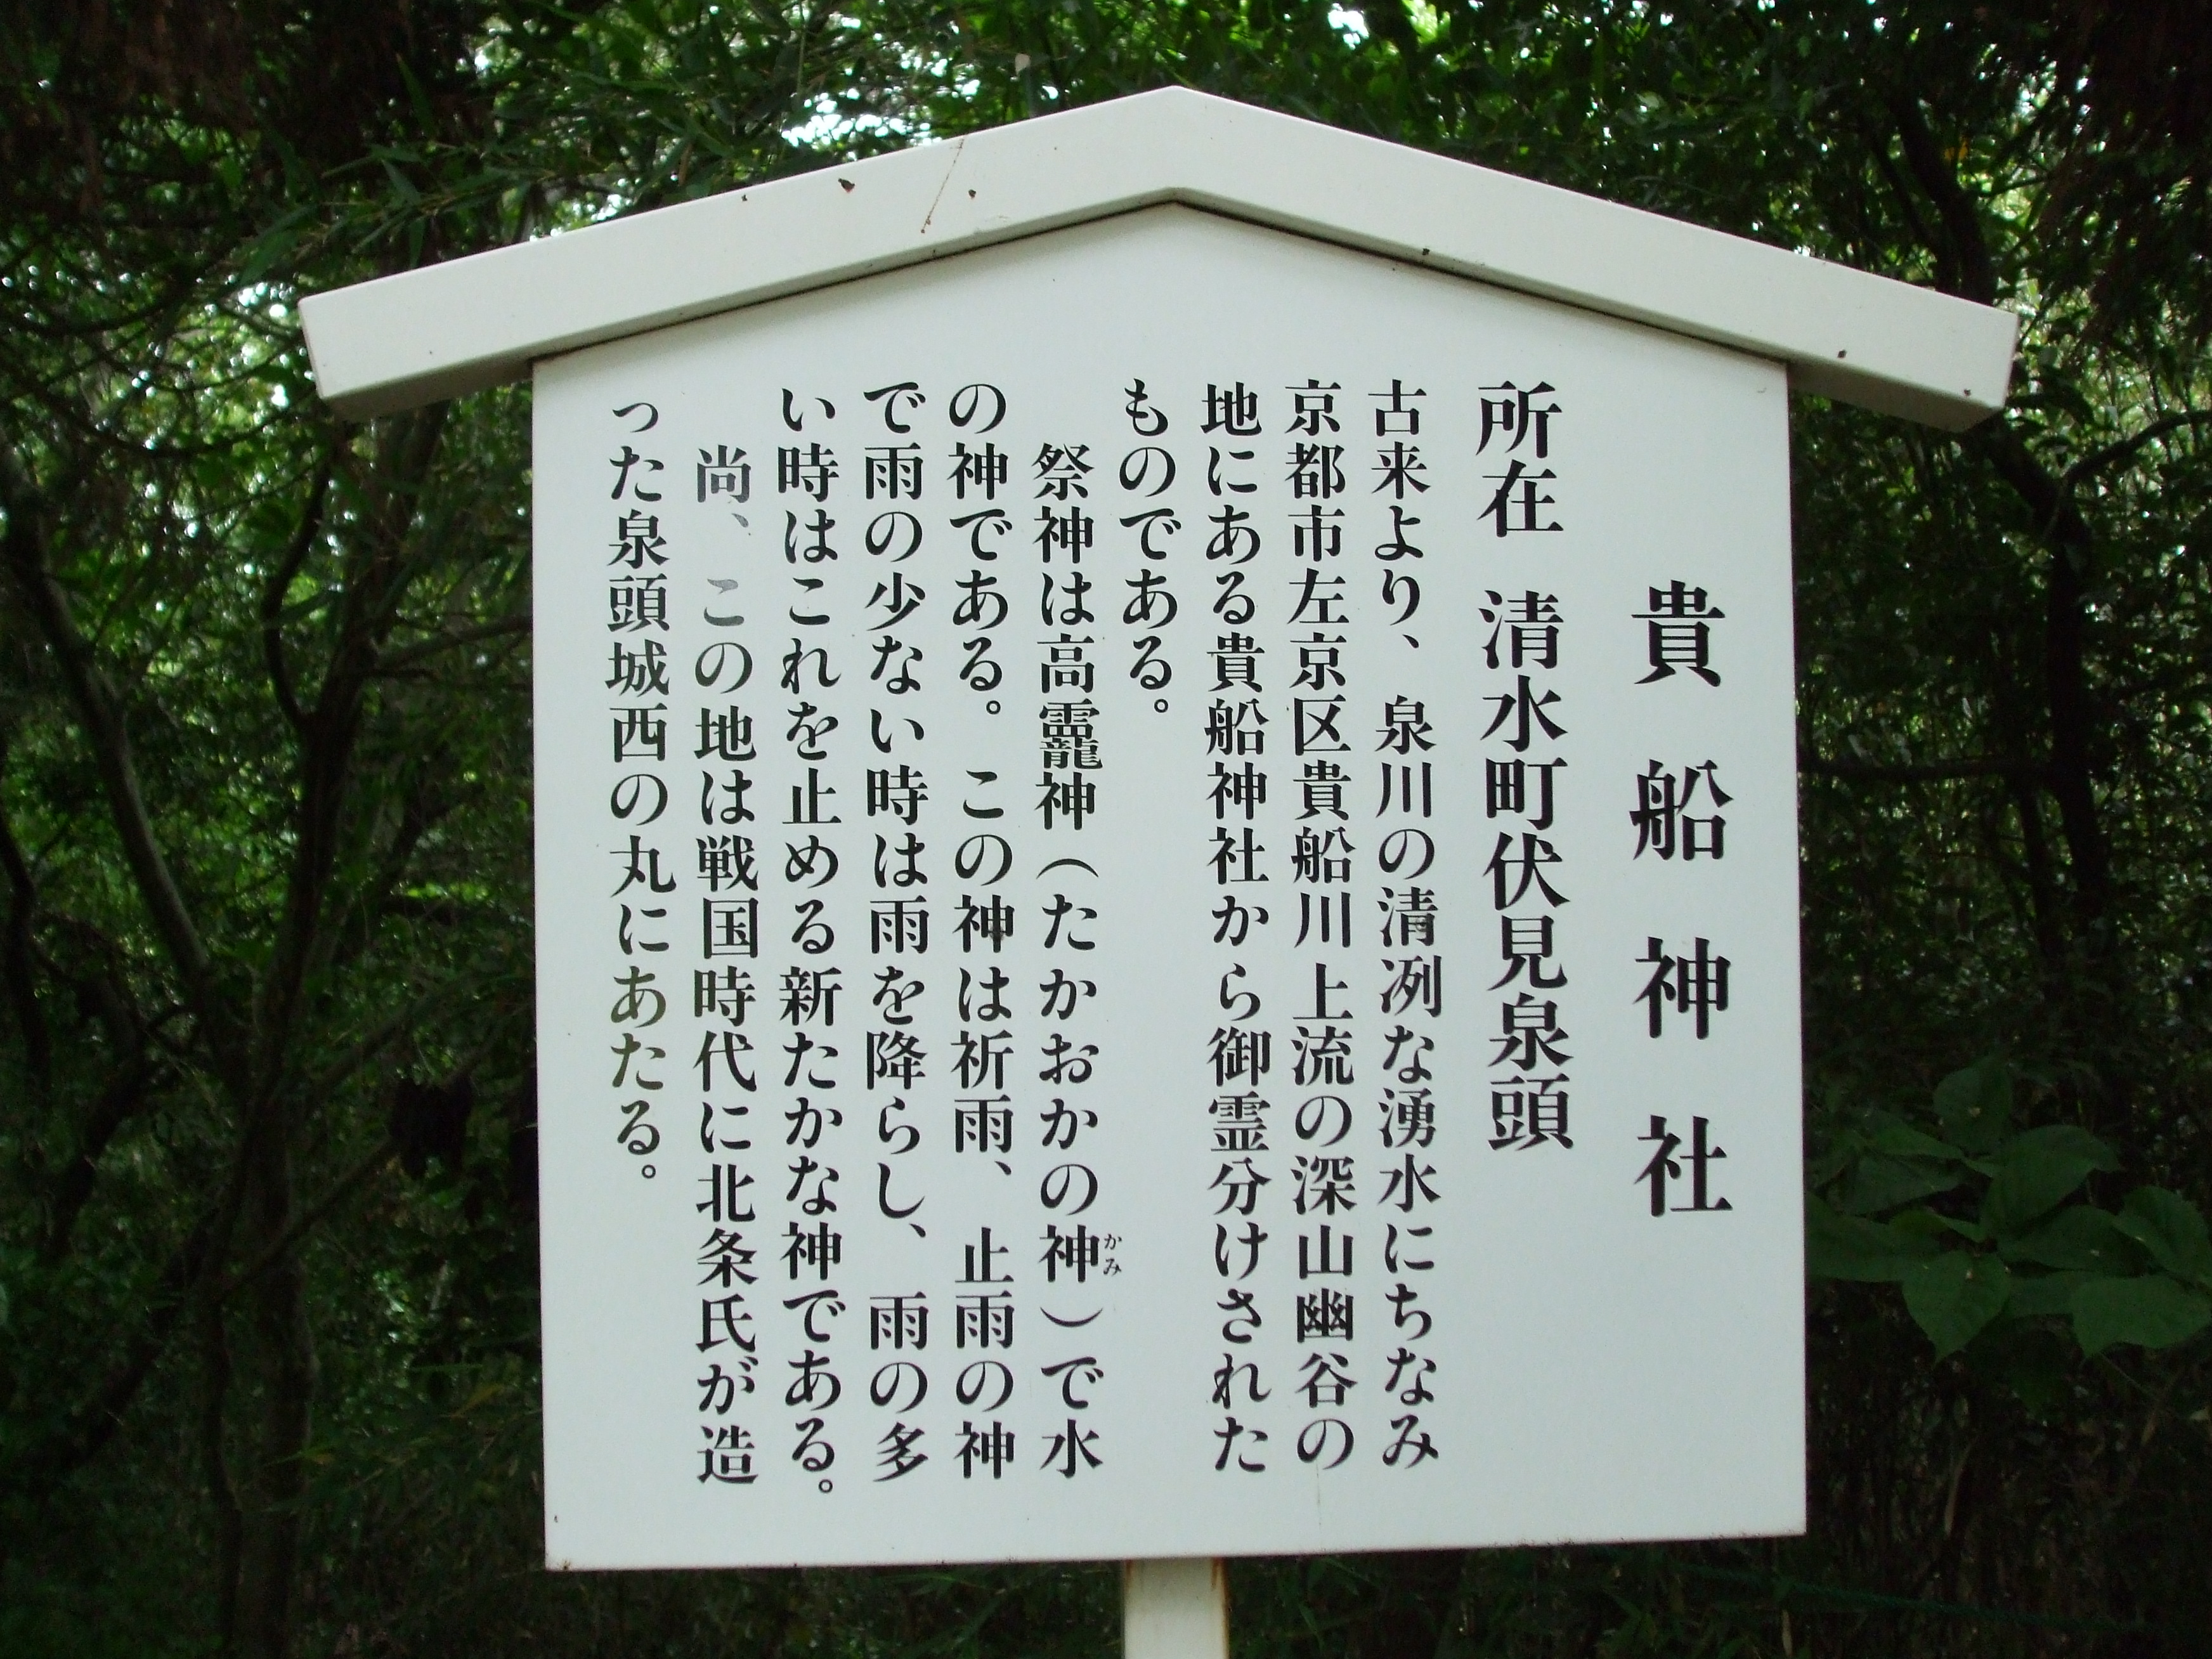 貴船神社
所在 清水町伏見泉頭
古来より、泉川の清冽な湧水にちなみ
京都市左京区貴船川上流の深山幽谷の
地にある貴船神社から御霊分けされた
ものである。
祭神は高龗神（たかおかの神）で水
かみ
の神である。この神は祈雨、止雨の神
で雨の少ない時は雨を降らし、雨の多
い時はこれを止める新たかな神である。
尚、この地は戦国時代に北条氏が造
った泉頭城西の丸にあたる。